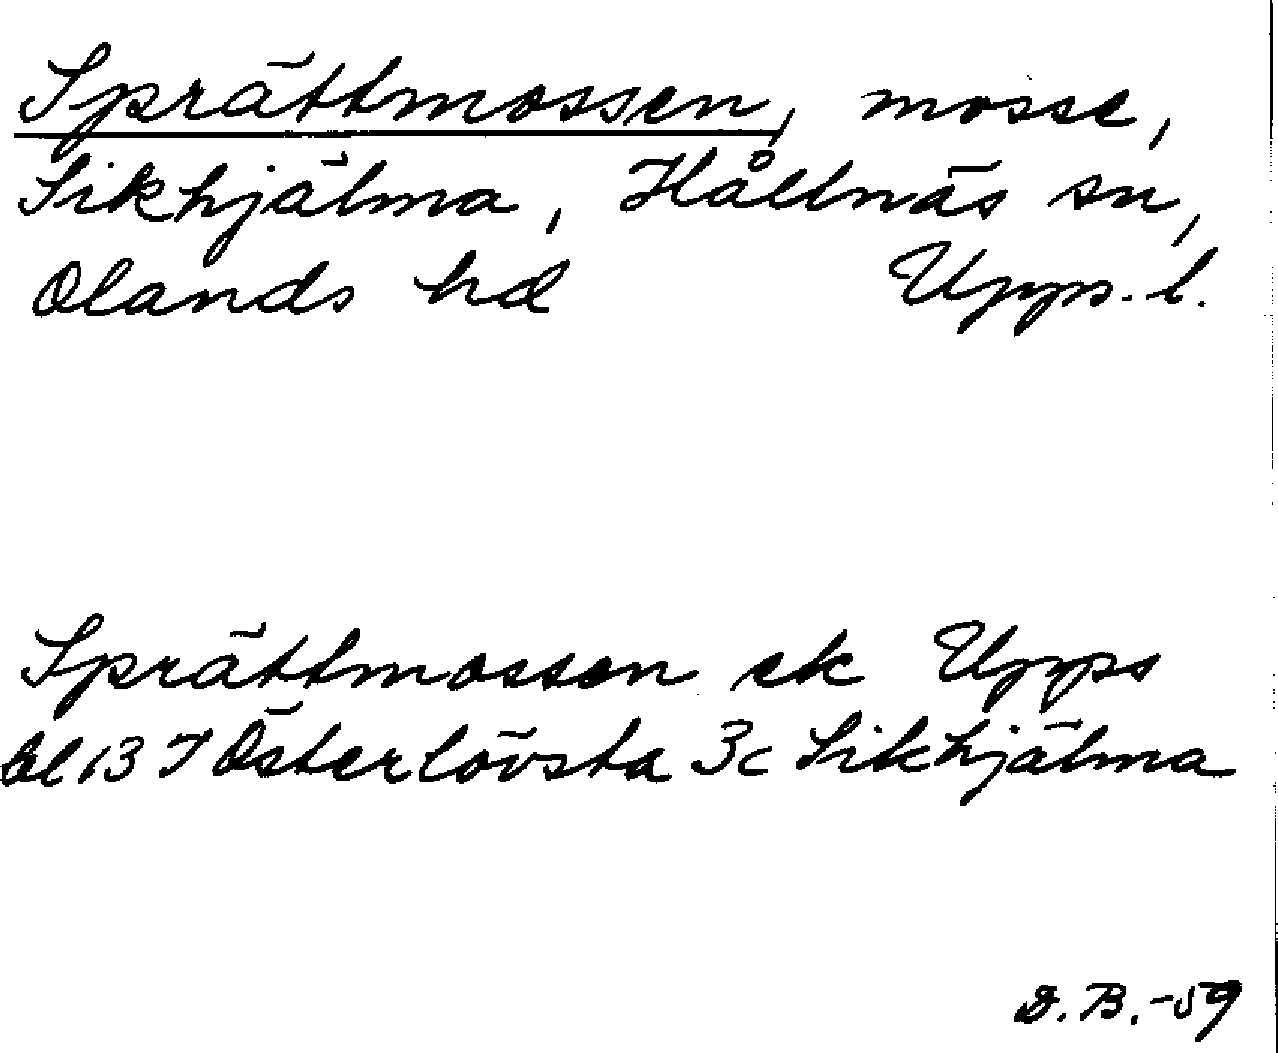 Sprättmossen, mosse,
Sikhjälma, Hållnäs sn,
Olands hd Upps. l.
Sprättmossen ek Upps
bl 13 I Österlövsta 3c Sikhjälma
D. B. -59